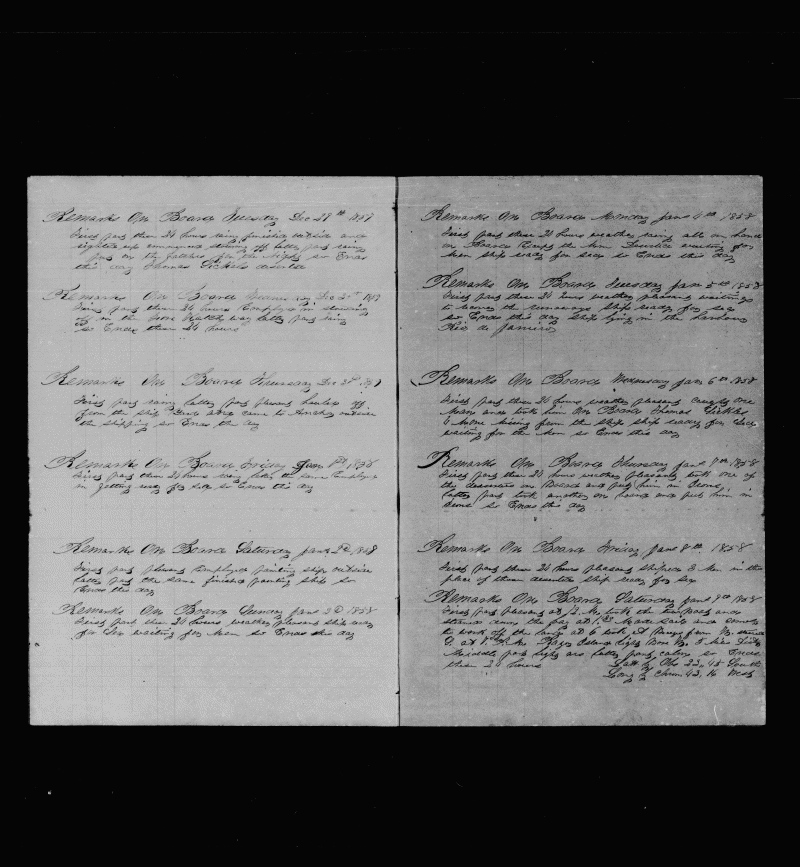 Remarks On Board Tuesday Dec 29th 1857
First part these 24 hours rainy finished outside and
commenced stowing off latter part rainy
put on the hatches for the night so Ends
this day Thomas Sickels
Remarks On Board Dec 30th 1857
First part these 24 hours Employed in stowing
off in the fore Hatch way latter part rainy
so Ends these 24 hours
Remarks On Board Thursday Dec 31st 1857
First part rainy latter part pleasant hauled off
from the ship along came to Anchor outside
the shipping so Ends the day
Remarks On Board Friday Jan 1st 1858
First part these 24 hours rainy latter the same Employed
in getting ready for sea so Ends this day
Remarks On Board Saturday Jan 2d 1858
First part pleasant Employed painting ship outside
latter part the same finished painting ship so
Ends this day
Remarks On Board Sunday Jan 3d 1858
First part these 24 hours weather pleasant ship ready
for Sea waiting for Men so Ends this day
Remarks On Board Monday Jan 4th 1858
First part these 24 hours weather rainy all on hand
on Board Except the Men waiting for
Men ship ready for sea so Ends this day
Remarks On Board Tuesday Jan 5th 1858
First part these 24 hours weather pleasant waiting
to the runaways ship ready for sea
so Ends this day ship lying in the harbour
Rio de Janeiro
Remarks On Board Wednesday Jan 6th 1858
First part these 24 hours weather pleasant caught one
Man and took him On Board Thomas Sickles
missing from the ship ship ready for Sea
waiting for the Men so Ends this day
Remarks On Board Thursday Jan 7th 1858
First part these 24 hours weather pleasant took one of
the deserters on Board and put him in Irons
latter part took another on board and put him in
Irons so Ends this day
Remarks On Board Friday Jan 8th 1858
First part these 24 hours pleasant shipped 3 Men in the
place of them deserters ship ready for sea
Remarks On Board Saturday Jan 9th 1858
First part pleasant at 12 M, took the Steamboat and
steamed down the bay at 1.30 Made sail and commenced
to work off the land at 6 took
at 8 P.M. Island light bore
Middle part light airs latter part calm so Ends
these 24 hours Latt by Obs 23.45 South
Long by Chron 43.16 West